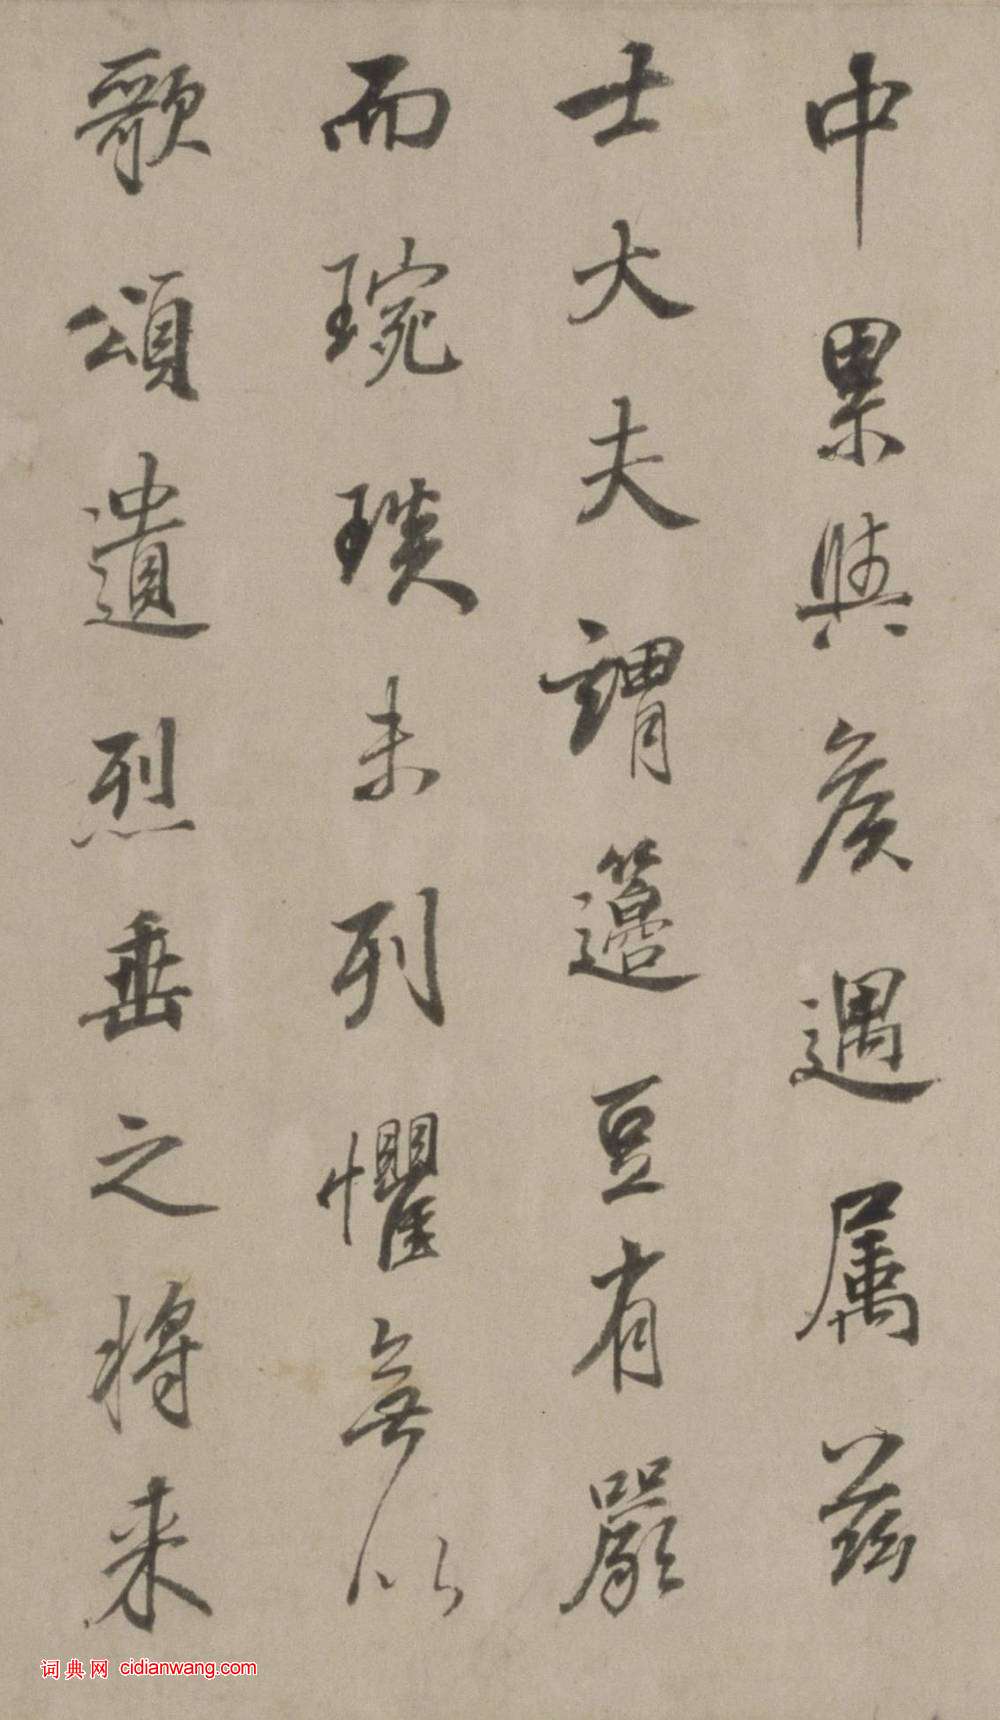 中累與矦遇属兹
士大夫謂籩豆有嚴
而琬琰未列懼無以
歌頌遺烈垂之将来
词典网 cidianwang.com